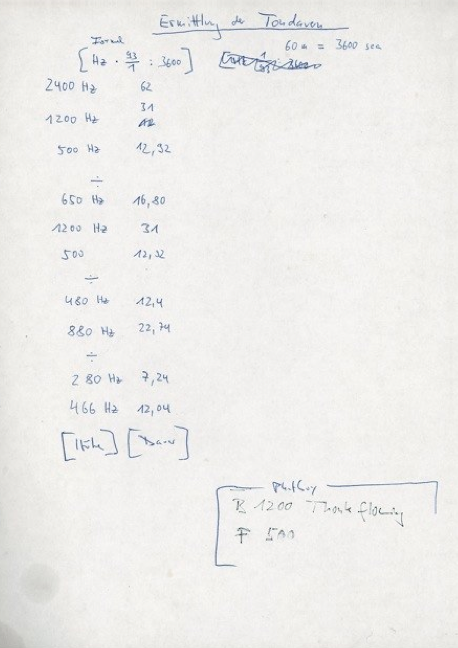 Ermittlung der Tondauern
Formel
60 m = 3600 sec
[Hz · 93/1 : 3600]
2400 Hz 62
31
1200 Hz
500 Hz 12,92
÷
650 Hz 16,80
1200 Hz 31
500 12,92
÷
480 Hz 12,4
880 Hz 22,74
÷
280 Hz 7,24
466 Hz 12,04
[Höhe] [Dauer]
R 1200
F 500